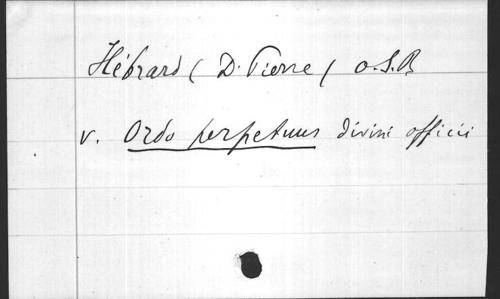 Hébrard (D. Pierre) O.S.B
v. Ordo perpetuus divini officii